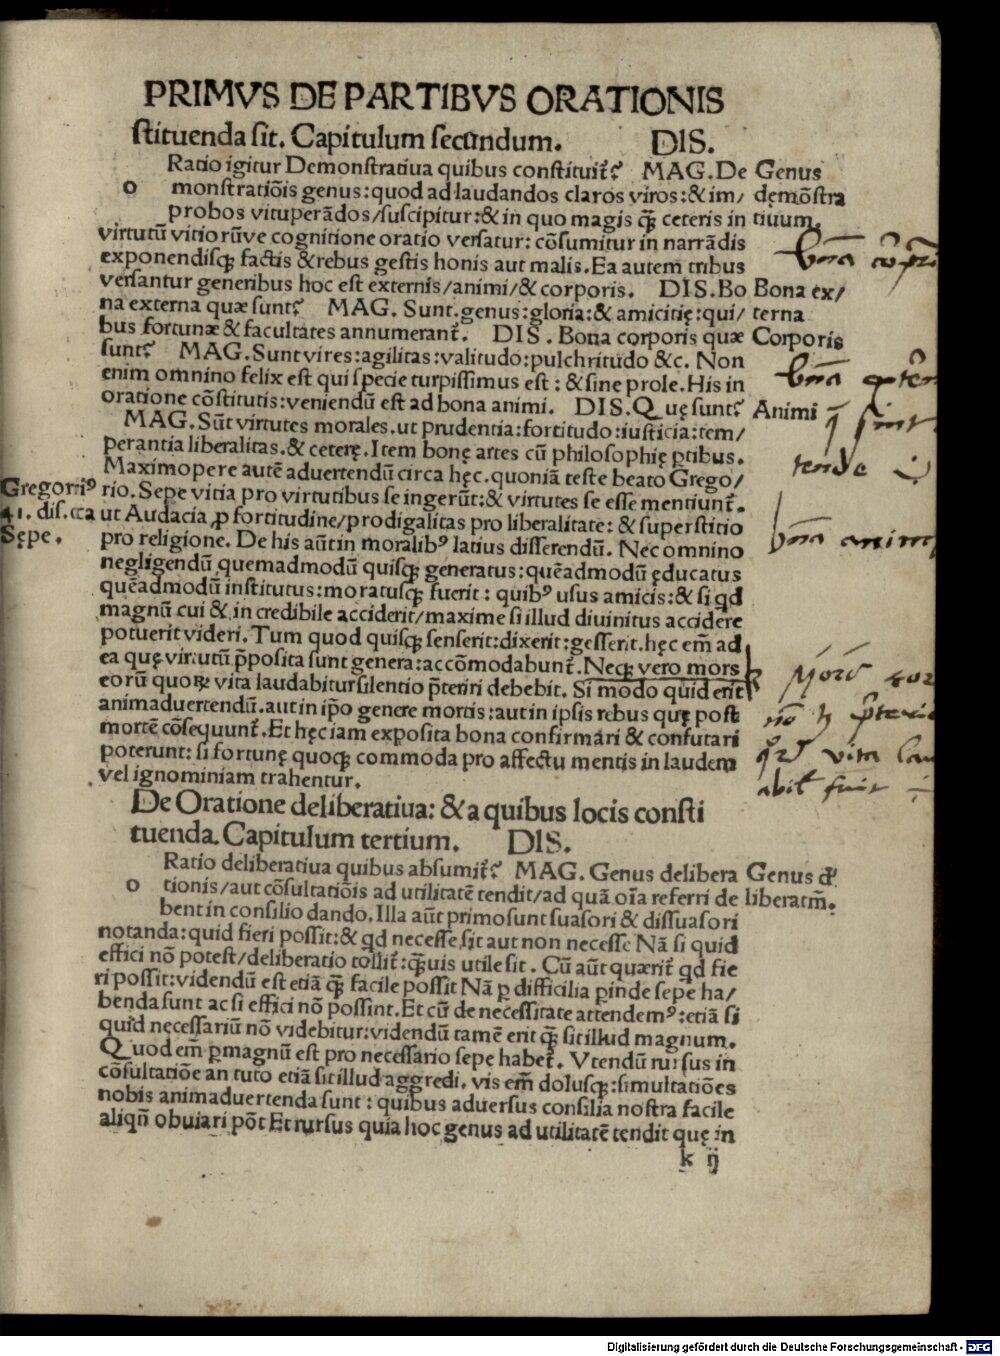 PRIMVS DE PARTIBVS ORATIONIS
stituenda sit. Capitulum secundum. DIS.
Ratio igitur Demonstratiua quibus constituit᷑? MAG. De
o monstratiõis genus: quod ad laudandos claros viros: & im/
probos vituperãdos/suscipitur: & in quo magis q̃ꝫ ceteris in
virtutũ vitiorũve cognitione oratio versatur: cõsumitur in narrãdis
exponendisqꝫ factis & rebus gestis honis aut malis. Ea autem tribus
versantur generibus hoc est externis/animi/& corporis. DIS. Bo
na externa quæ sunt? MAG. Sunt. genus: gloria: & amicitię: qui/
bus fortunæ & facultates annumerant᷑. DIS. Bona corporis quæ
sunt? MAG. Sunt vires: agilitas: valitudo: pulchritudo &c. Non
enim omnino felix est qui specie turpissimus est: & sine prole. His in
oratione cõstitutis: veniendũ est ad bona animi. DIS. Quę sunt?
MAG. Sũt virtutes morales. ut prudentia: fortitudo: iusticia: tem/
perantia liberalitas. & ceterę. Item bonę artes cũ philosophię ꝑtibus.
Maximopere autẽ aduertendũ circa hęc. quoniã teste beato Grego/
rio. Sepe vitia pro virtutibus se ingerũt: & virtutes se esse mentiunt᷑.
ut Audacia ꝓ fortitudine/prodigalitas pro liberalitate: & superstitio
pro religione. De his aũt in moralibꝰ latius disserendũ. Nec omnino
negligendũ quemadmodũ quisqꝫ generatus: quẽadmodũ ęducatus
quẽadmodũ institutus: moratusqꝫ fuerit: quibꝰ usus amicis: & si qd
magnũ cui & incredibile acciderit/maxime si illud diuinitus accidere
potuerit videri. Tum quod quisqꝫ senserit: dixerit: gesserit. hęc em̃ ad
ea quę virtutũ p̃posita sunt genera: accõmodabunt᷑. Neqꝫ vero mors
eorũ quoꝝ vita laudabitur silentio p̃teriri debebit. Si modo quid erit
animaduertendũ. aut in ip̃o genere mortis: aut in ipsis rebus quę post
mortẽ cõsequunt᷑. Et hęc iam exposita bona confirmari & confutari
poterunt: si fortunę quoqꝫ commoda pro affectu mentis in laudem
vel ignominiam trahentur.
De Oratione deliberatiua: & a quibus locis consti
tuenda. Capitulum tertium. DIS.
Ratio deliberatiua quibus absumit᷑? MAG. Genus delibera
o tionis/aut cõsultatiõis ad utilitatẽ tendit/ad quã oĩa referri de
bent in consilio dando. Illa aũt primo sunt suasori & dissuasori
notanda: quid fieri possit: & qd necesse sit aut non necesse Nã si quid
effici nõ potest/deliberatio tollit᷑: q̃ꝫuis utile sit. Cũ aũt quærit᷑ qd fie
ri possit: videndũ est etiã q̃ꝫ facile possit Nã ꝑ difficilia ꝑinde sepe ha/
benda sunt ac si effici nõ possint. Et cũ de necessitate attendemꝰ: etiã si
quid nęcessariũ nõ videbitur: videndũ tamẽ erit q̃ꝫ sit illud magnum.
Quod em̃ ꝑmagnũ est pro necessario sepe habet᷑. Vtendũ rursus in
cõsultatiõe an tuto etiã sit illud aggredi. vis em̃ dolusqꝫ: simultatiões
nobis animaduertenda sunt: quibus aduersus consilia nostra facile
aliqñ obuiari põt Et rursus quia hoc genus ad utilitatẽ tendit quę in
k ij
Genus
dęmõstra
tiuum.
Bona ex/
terna
Corporis
Animi
Gregoriꝰ
41. dis. cca
Sępe.
Genus d᷑
liberatm̃.
bona
bona
q̃ sint
bona anim
vita lau
fuit
Digitalisierung gefördert durch die Deutsche Forschungsgemeinschaft - DFG